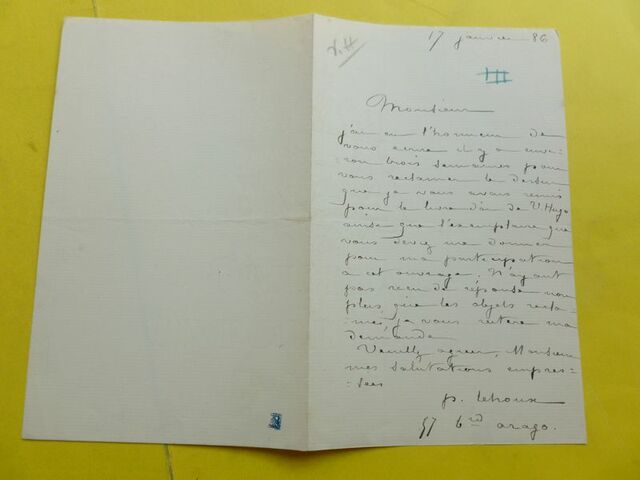 17 janvier 86
V. H
III
Monsieur
j'ai eu l'honneur de
vous écrire il y a envi-
ron trois semaines pour
vous réclamer le dessin
que je vous avais remis
pour le livre d'or de V. Hugo
ainsi que l'exemplaire que
vous devez me donner
pour ma participation
à cet ouvrage. N'ayant
pas reçu de réponse non
plus que les objets récla-
-més, je vous réitère ma
demande
Veuillez agréer, Monsieur
mes salutations empres-
-sées
p. Lehoux
57 b^rd arago.